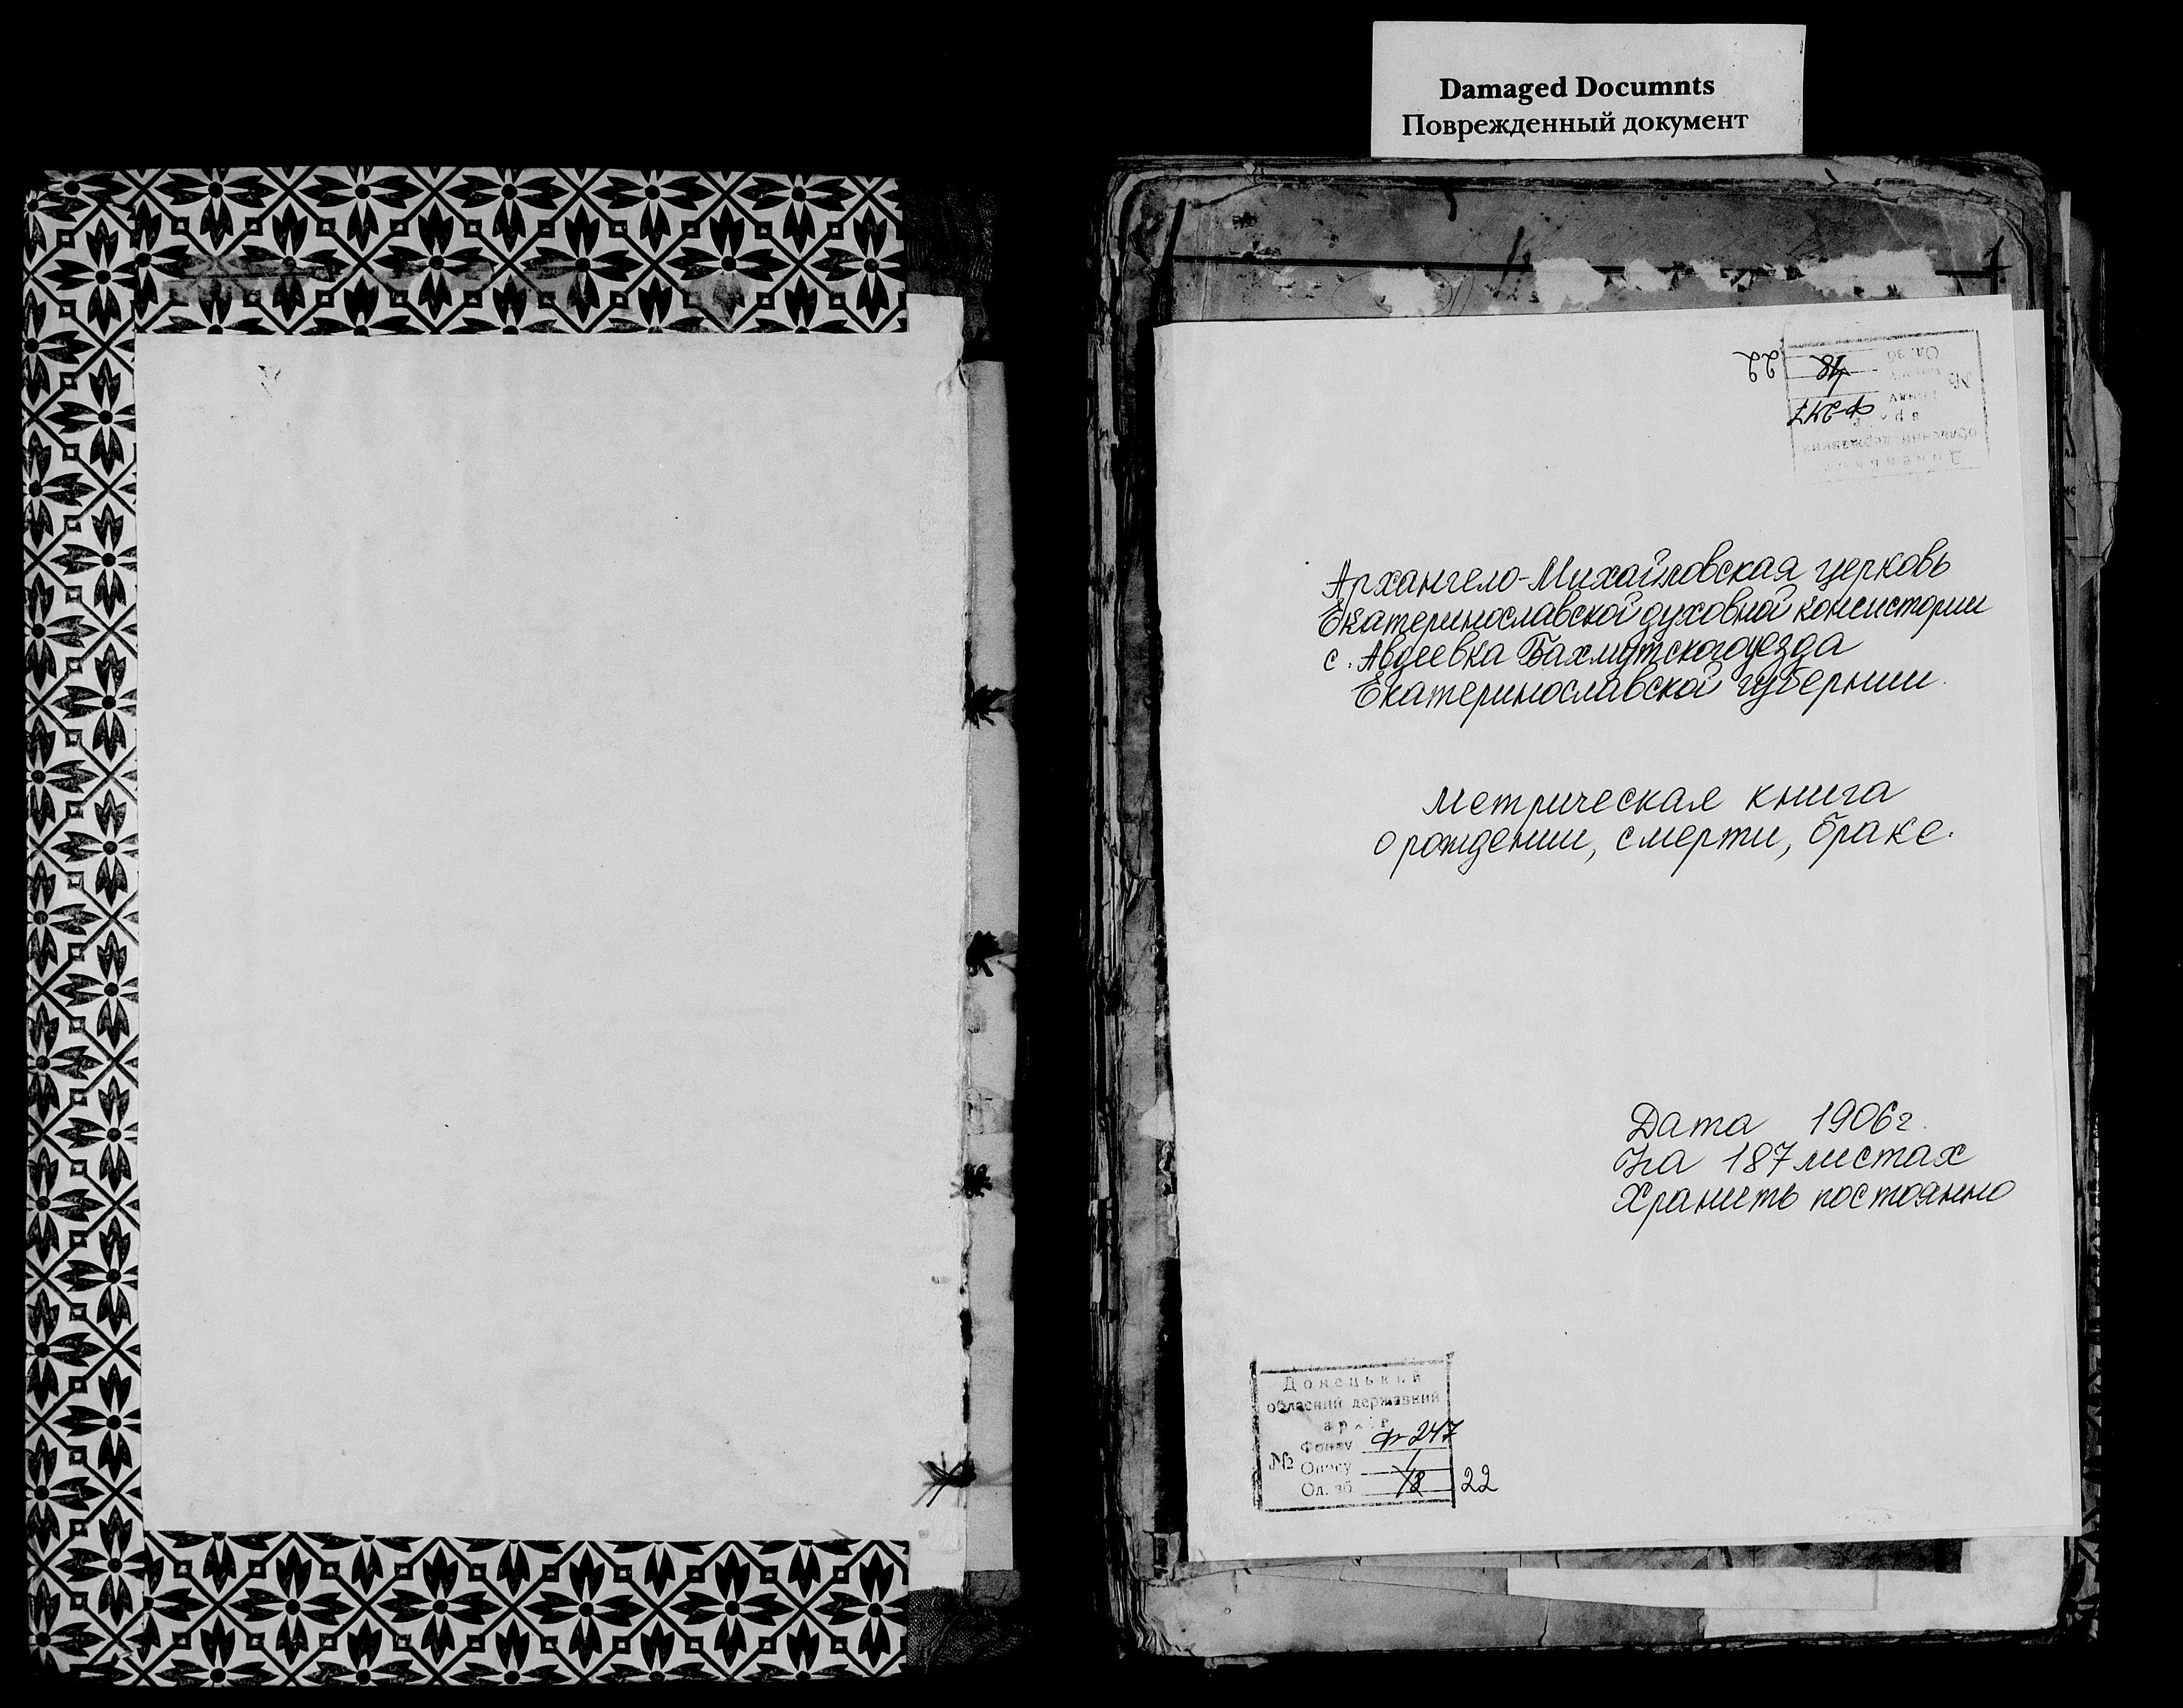 Damaged Documnts
Поврежденный документ
22
18
Ф-247
Архангело-Михайловская церковь
Екатеринославской духовной консистории
с. Авдеевка Бахмутского уезда
Екатеринославской губернии.
Метрическая книга
о рождении, смерти, браке.
Дата 1906г.
На 187 листах
Хранить постоянно
Донецький
обласний державний
архів
Фонду Ф-247
№ Опису 1
Од. зб. 18 22